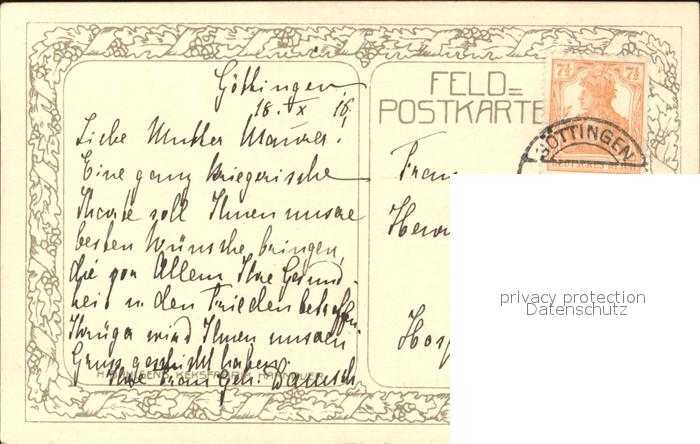 Göttingen,
18. X 16.
Liebe Mutter Maurer!
Eine ganz kriegerische
Karte soll Ihnen unsere
besten Wünsche bringen,
die vor Allem Ihre Gesund-
heit u. den Frieden betreffen.
Krüger wird Ihnen unseren
Gruss geschickt haben.
Ihre Frau Geh.
KEKSFABRIK
FELD=
POSTKARTE
7½ 7½
DEUTSCHES REICH
GÖTTINGEN
Frau
privacy protection
Datenschutz